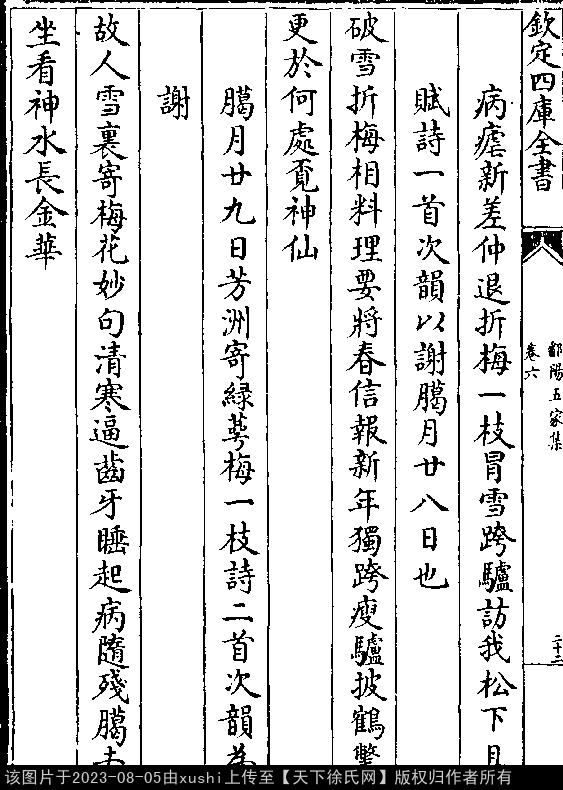 欽定四庫全書
鄱陽五家集
卷六
二十三
病瘧新差仲退折梅一枝冒雪跨驢訪我松下且
賦詩一首次韻以謝臈月廿八日也
破雪折梅相料理要將春信報新年獨跨瘦驢披鶴氅
更於何處覓神仙
臈月廿九日芳洲寄緑萼梅一枝詩二首次韻為
謝
故人雪裏寄梅花妙句清寒逼齒牙睡起病隨殘臈去
坐看神水長金華
该图片于2023-08-05由xushi上传至【天下徐氏网】版权归作者所有